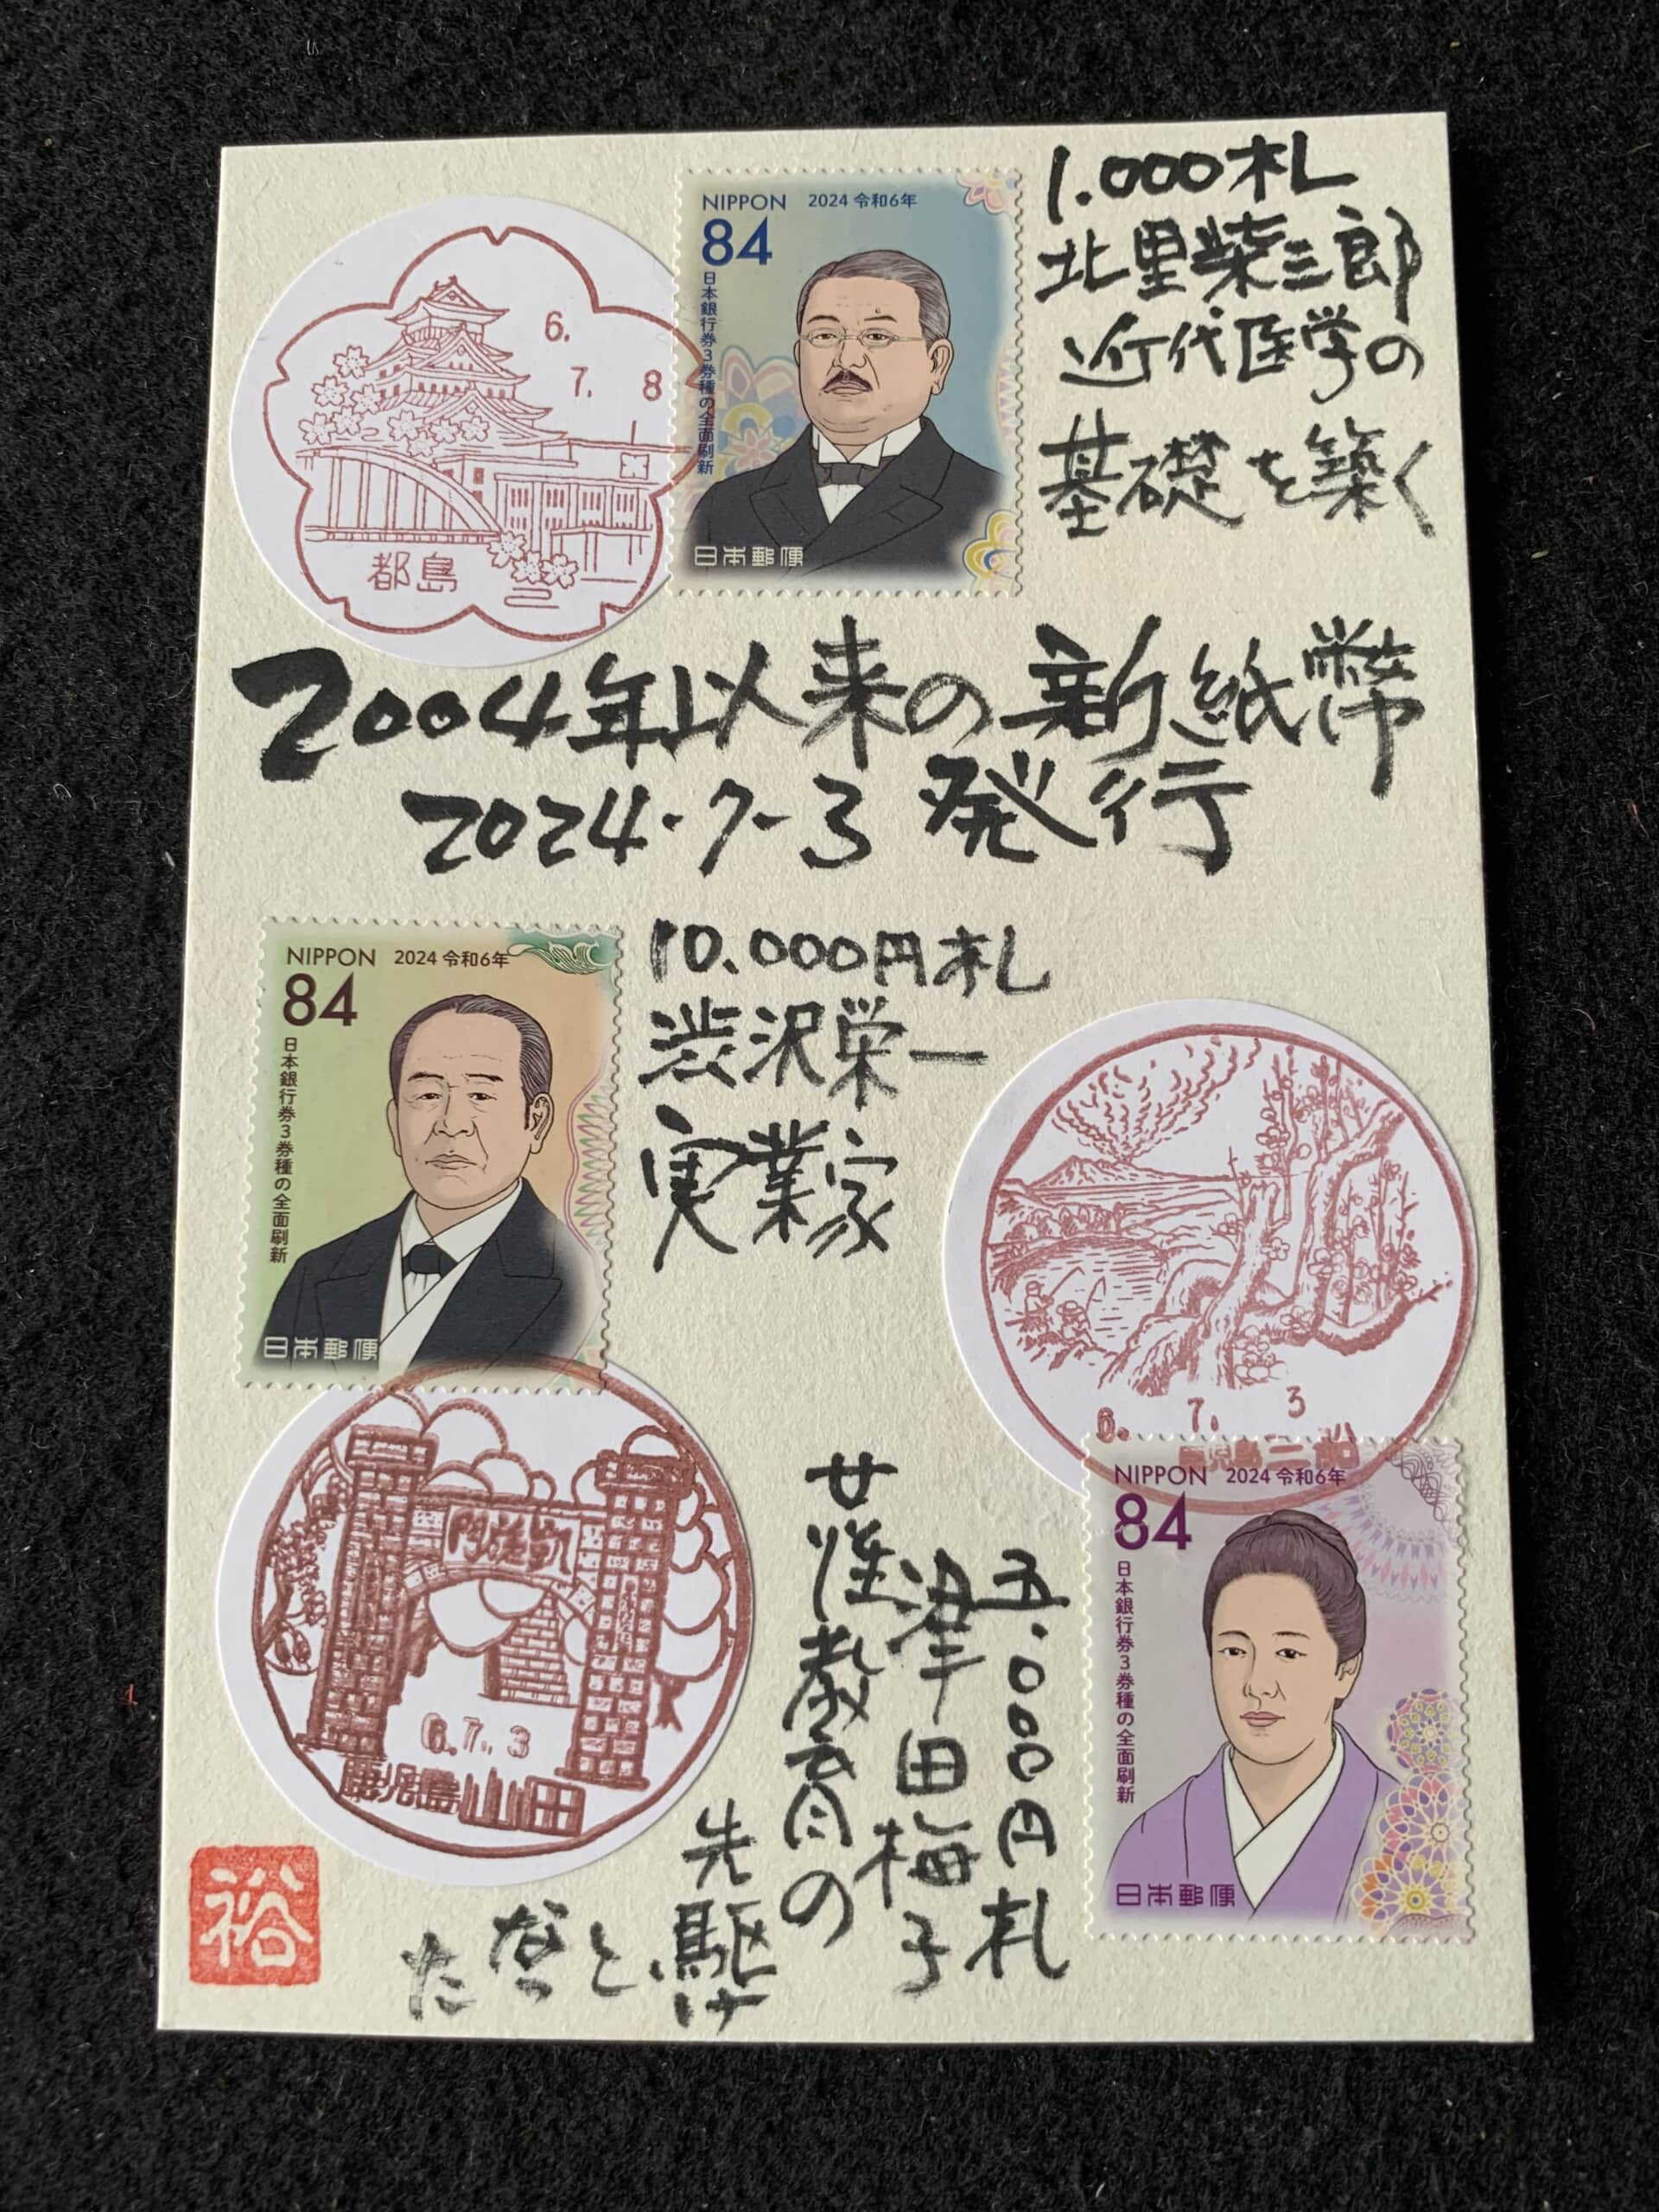 6.
7. 8
都島
NIPPON 2024 令和6年
84
日本銀行券3券種の全面刷新
日本郵便
1.000札
北里柴三郎
近代医学の
基礎を築く
2004年以来の新紙幣
2024・7-3 発行
NIPPON 2024 令和6年
84
日本銀行券3券種の全面刷新
日本郵便
10.000円札
渋沢栄一
実業家
6. 7. 3
鹿児島三船
NIPPON 2024 令和6年
84
日本銀行券3券種の全面刷新
日本郵便
五.000円札
津田梅子
女性教育の
先駆け
となった
門旋凱
6.7.3
鹿児島山田
裕